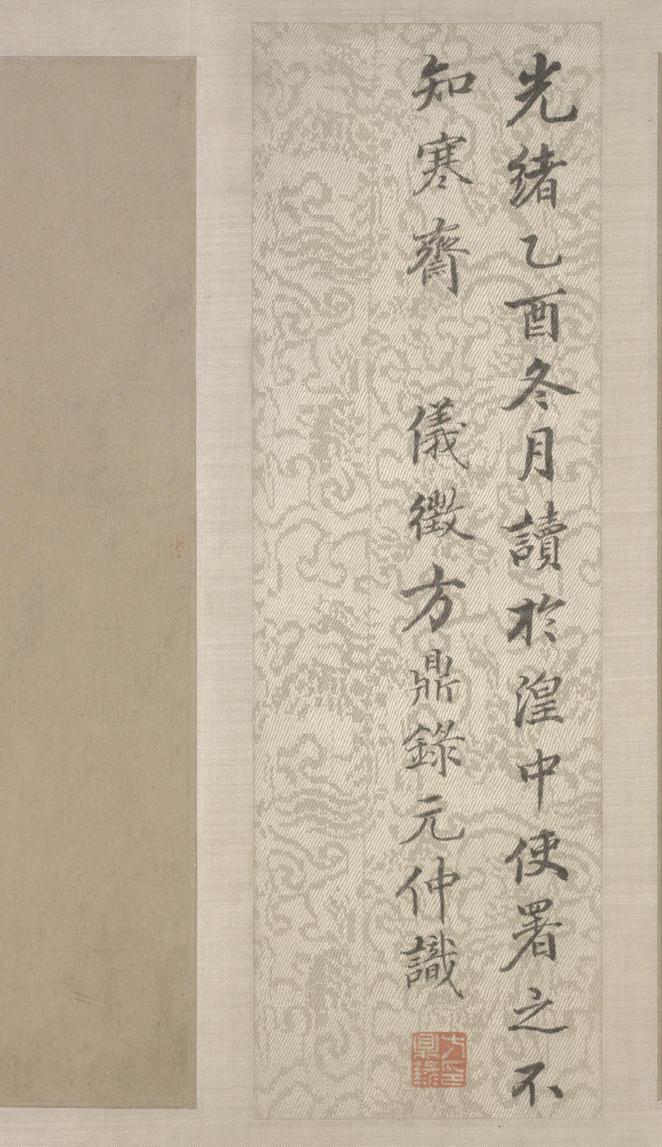 光緒乙酉冬月讀於湟中使署之不
知寒齋　儀徵方鼎錄元仲識